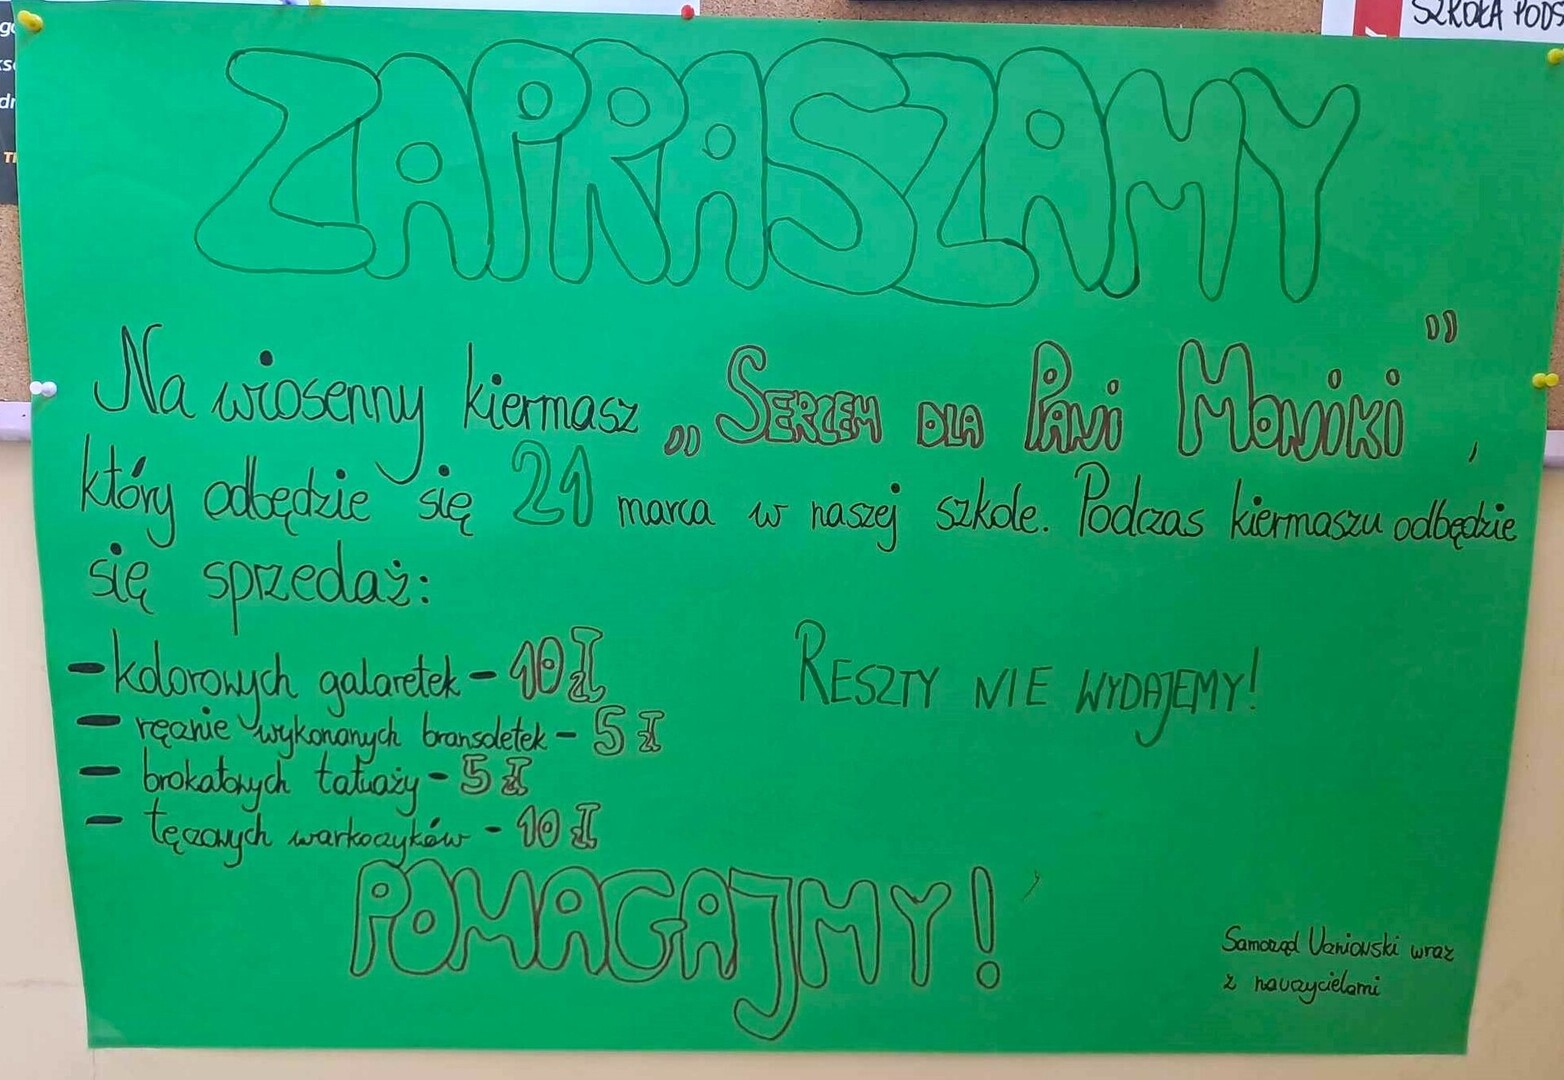 SZKOŁA PODS
ZAPRASZAMY
Na wiosenny kiermasz „SERCEM DLA PANI MONIKI",
który odbędzie się 21 marca w naszej szkole. Podczas kiermaszu odbędzie
się sprzedaż:
- kolorowych galaretek - 10 zł
- ręcznie wykonanych bransoletek - 5 zł
- brokatowych tatuaży - 5 zł
- tęczowych warkoczyków - 10 zł
RESZTY NIE WYDAJEMY!
POMAGAJMY!
Samorząd Uczniowski wraz
z nauczycielami